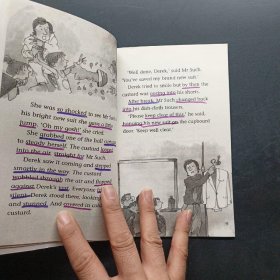 She was so shocked to see Mr Such
his brand new suit she
'Oh my gosh!' she cried.
She grabbed one of the ball
to steady herself. The custard
into the air, straight for Mr Such
Derek saw it coming and
smartly in the way. The custard
through the air and
against Derek's Everyone
silent. Derek stood there, looking
and And covered in
custard.
'Well done, Derek,' said Mr Such.
'You've saved my brand new suit.'
Derek tried to smile but by then the
custard was oozing into his shorts.
After break, Mr Such changed back
into his dish-cloth trousers.
'Please keep clear of this,' he said,
hanging his new suit on the cupboard
door. 'Keep well clear.'